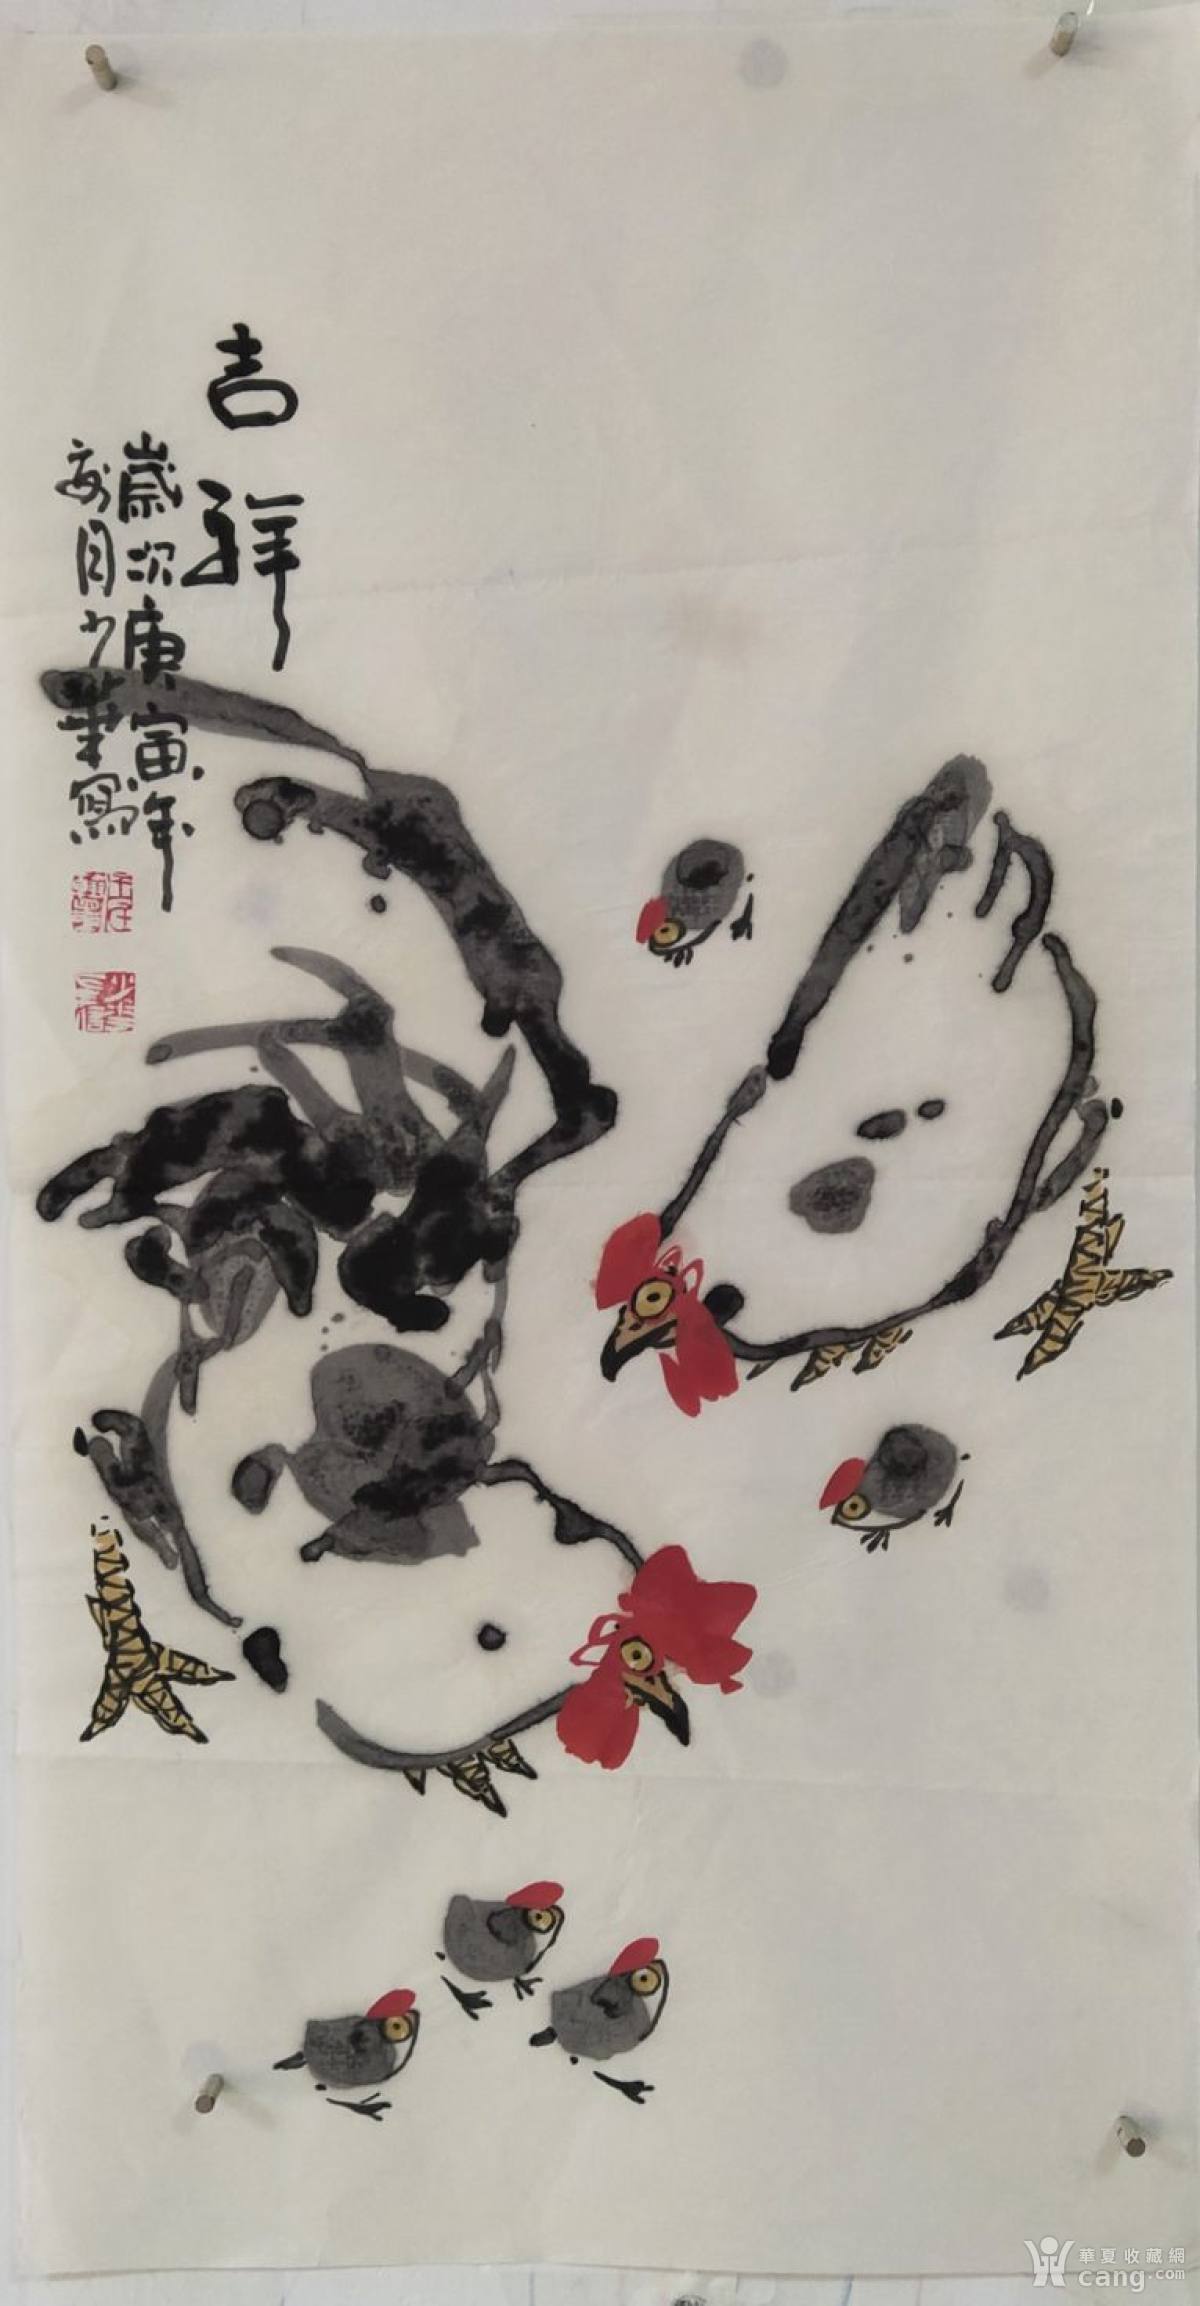 吉祥
歲次庚寅年
荷月少華寫
華夏收藏網
cang.com